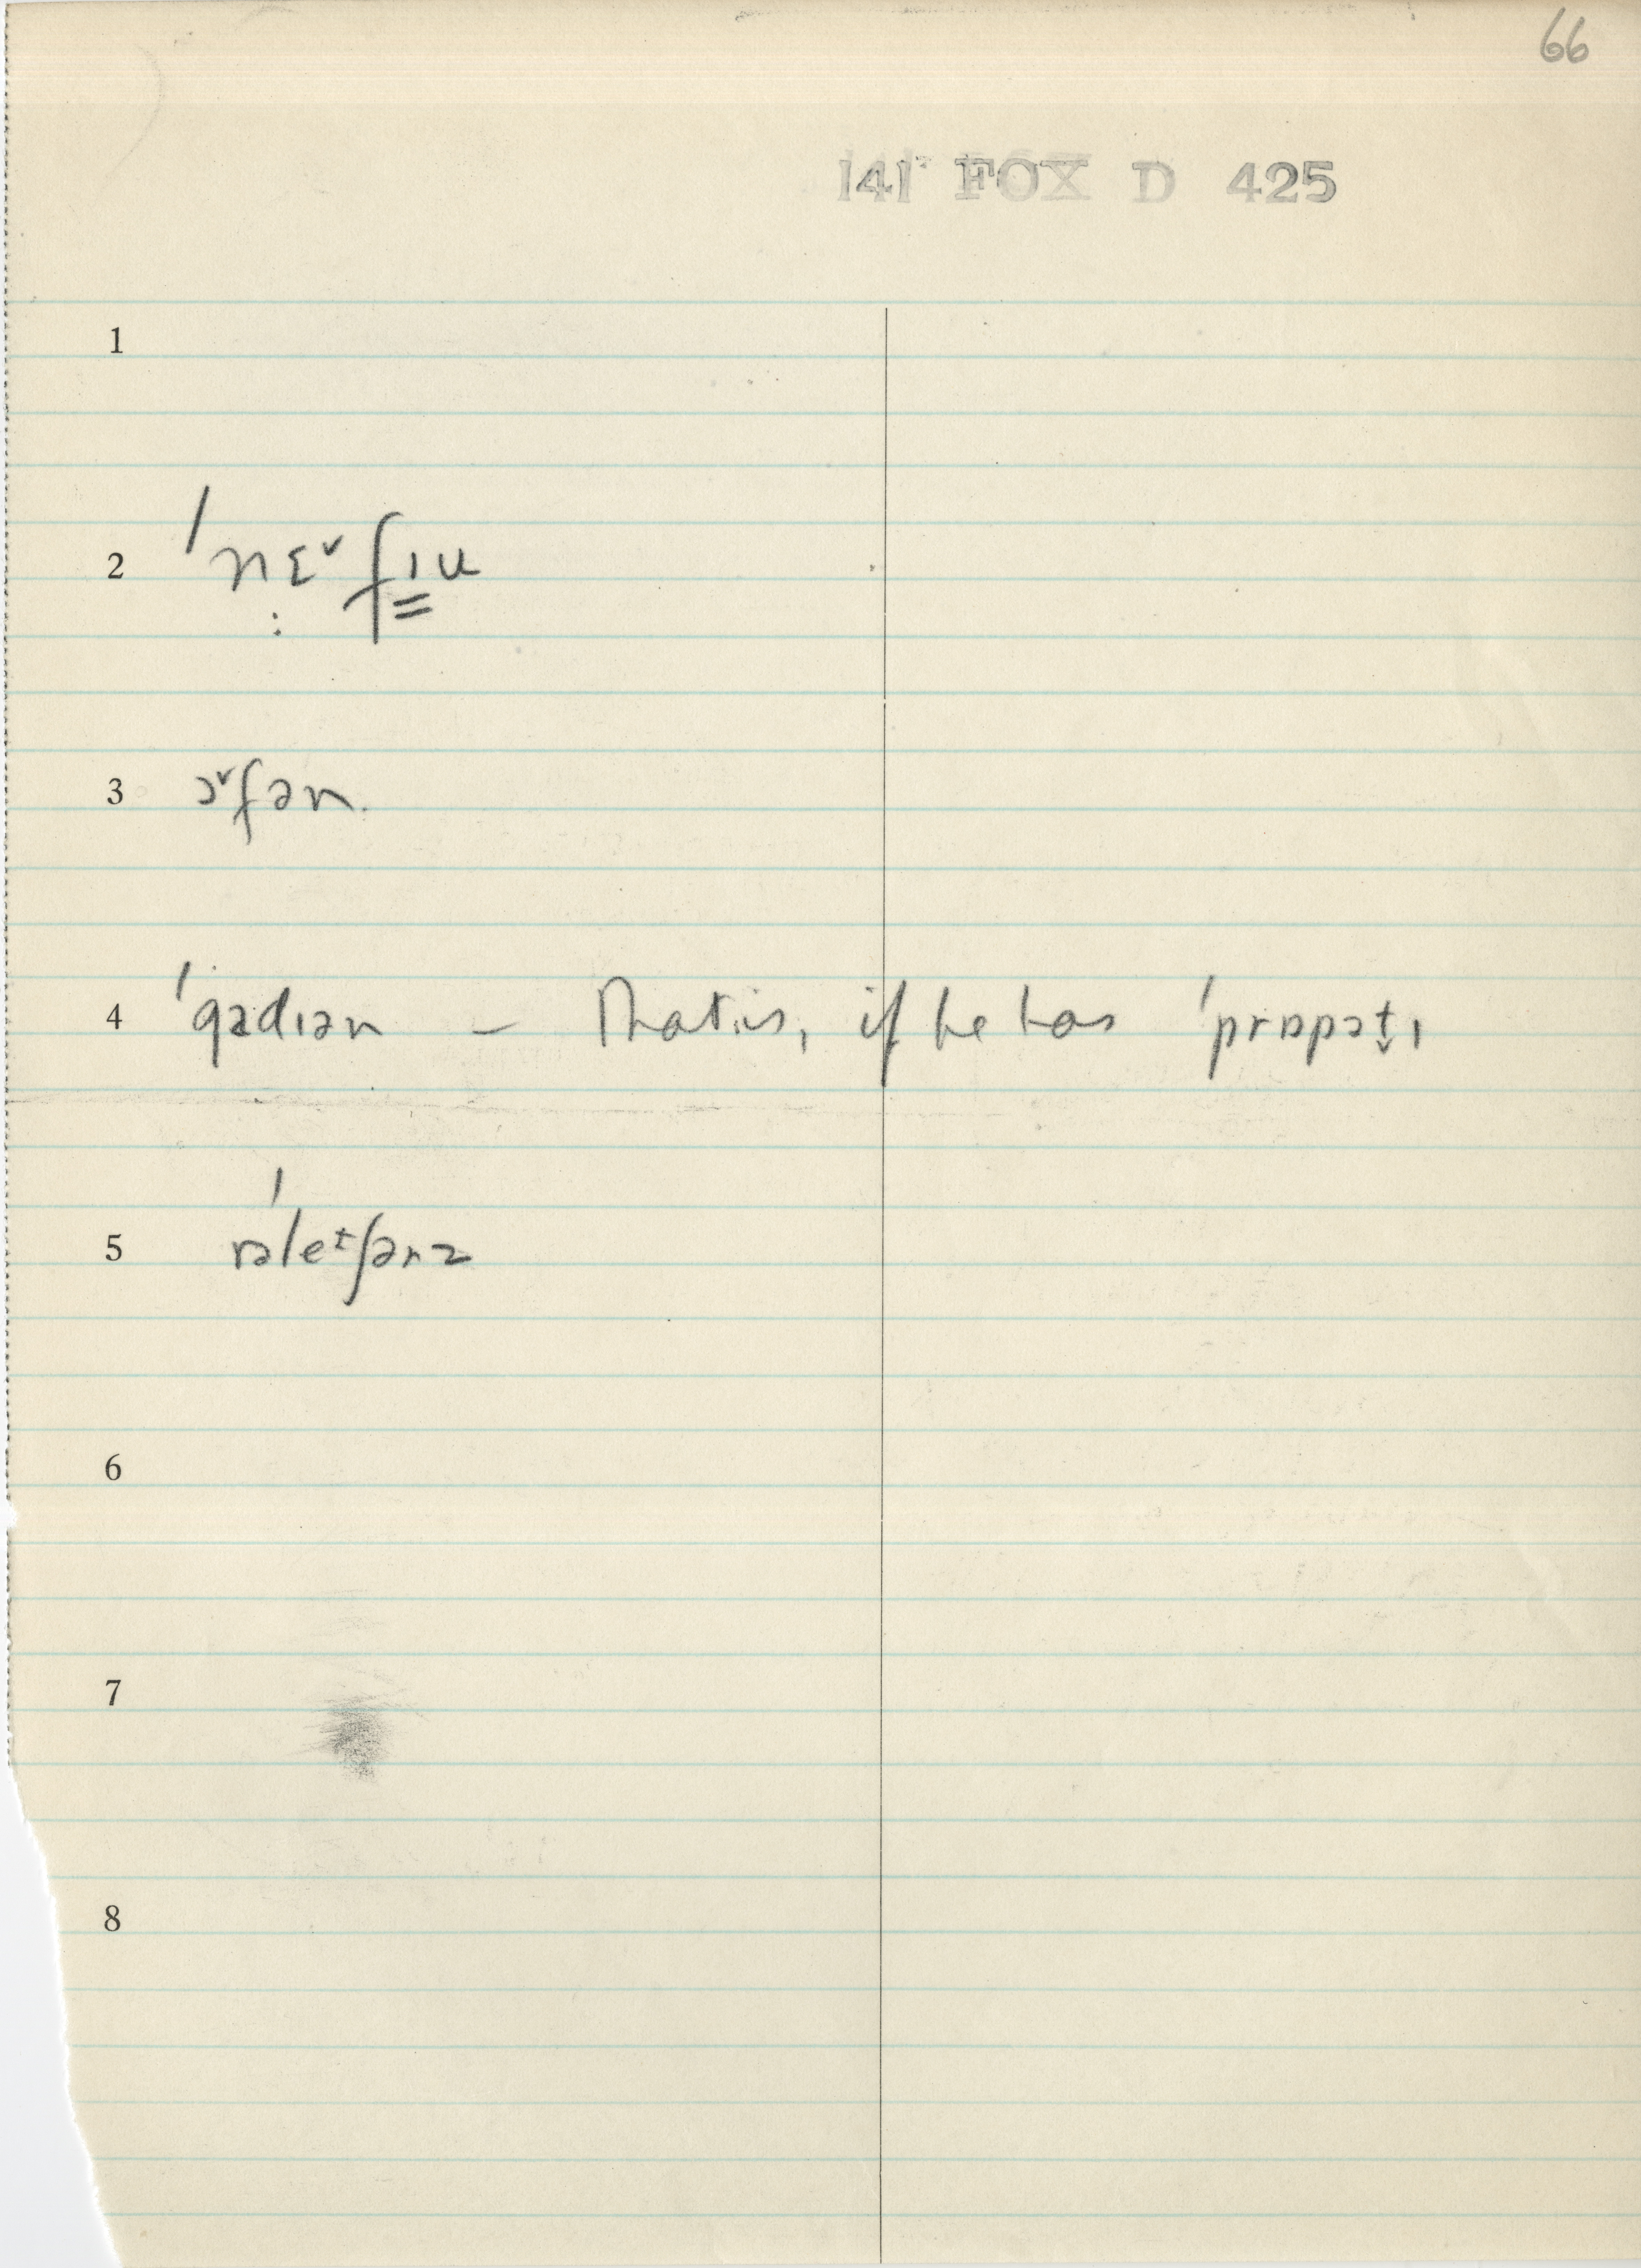 66
141 FOX D 425
1
2 ˈnɛ̣ˇfɪ̳u
3 ɔˇfən.
4 ˈgɑdɪən – That is, if he has ˈprɒpət̬ɪ
5 rəˈleᶦʃənz
6
7
8